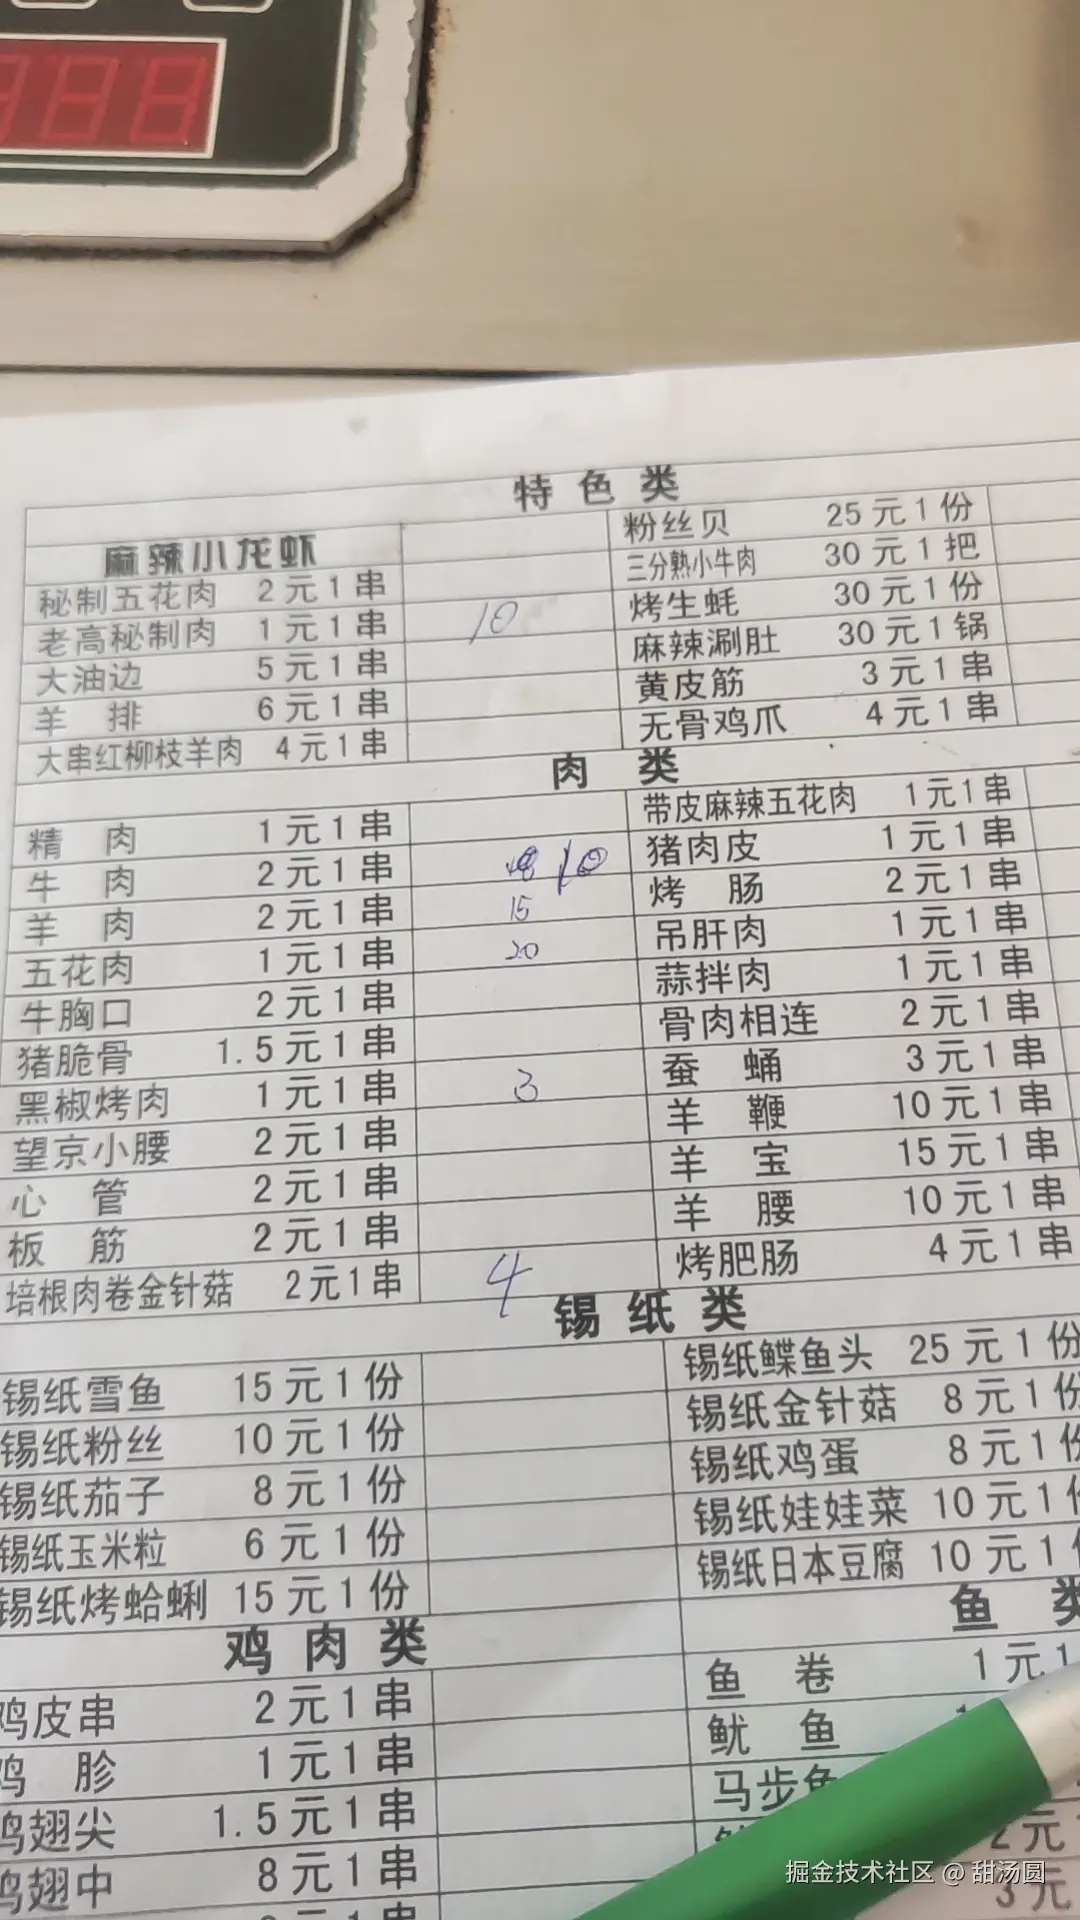 888
特色类
麻辣小龙虾
粉丝贝 25元1份
秘制五花肉 2元1串
三分熟小牛肉 30元1把
老高秘制肉 1元1串 10
烤生蚝 30元1份
大油边 5元1串
麻辣涮肚 30元1锅
羊排 6元1串
黄皮筋 3元1串
大串红柳枝羊肉 4元1串
无骨鸡爪 4元1串
肉类
带皮麻辣五花肉 1元1串
精肉 1元1串
猪肉皮 1元1串
牛肉 2元1串 10
烤肠 2元1串
羊肉 2元1串 15
吊肝肉 1元1串
五花肉 1元1串 20
蒜拌肉 1元1串
牛胸口 2元1串
骨肉相连 2元1串
猪脆骨 1.5元1串
蚕蛹 3元1串
黑椒烤肉 1元1串 3
羊鞭 10元1串
望京小腰 2元1串
羊宝 15元1串
心管 2元1串
羊腰 10元1串
板筋 2元1串
烤肥肠 4元1串
培根肉卷金针菇 2元1串 4
锡纸类
锡纸鲽鱼头 25元1份
锡纸雪鱼 15元1份
锡纸金针菇 8元1份
锡纸粉丝 10元1份
锡纸鸡蛋 8元1份
锡纸茄子 8元1份
锡纸娃娃菜 10元1份
锡纸玉米粒 6元1份
锡纸日本豆腐 10元1
锡纸烤蛤蜊 15元1份
鸡肉类
鱼类
鱼卷 1元1
鸡皮串 2元1串
鱿鱼
鸡胗 1元1串
马步鱼
鸡翅尖 1.5元1串
2元
鸡翅中 8元1串
3元
掘金技术社区 @ 甜汤圆